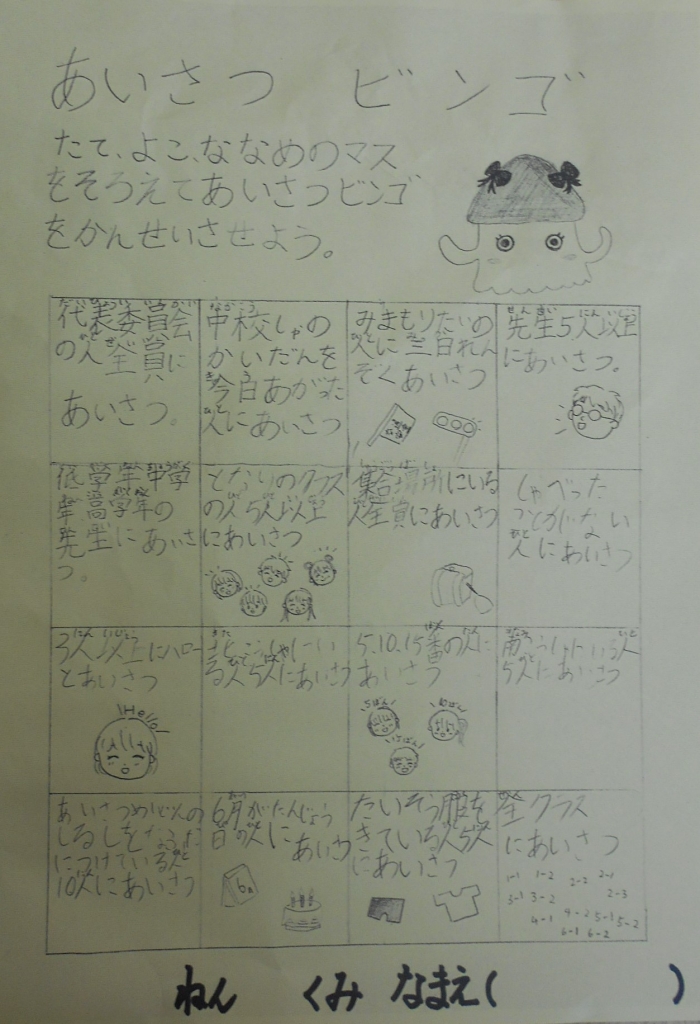 あいさつ ビンゴ
たて、よこ、ななめのマス
をそろえてあいさつビンゴ
をかんせいさせよう。
代表委員会
の人全員に
あいさつ。
中校しゃの
かいだんを
今日あがった
人にあいさつ
みまもりたいの
人に三日れん
ぞくあいさつ
先生5人以上
にあいさつ。
低学年中学
年高学年の
先生にあいさ
つ。
となりのクラス
の人5人以上
にあいさつ
集合場所にいる
人全員にあいさつ
しゃべった
ことがない
人にあいさつ
3人以上にハロー
とあいさつ
Hello
北こうしゃにい
る人5人にあいさつ
5.10.15番の人に
あいさつ
5ばん
10ばん
15ばん
南こうしゃにいる人
5人にあいさつ
あいさつめいじんの
しるしをなふだ
につけている人
10人にあいさつ
6月がたんじょう
日の人に
あいさつ
6月
たいそう服を
きている人5人
にあいさつ
全クラス
にあいさつ
1-1 1-2 2-2 2-1
3-1 3-2 2-3
4-1 4-2 5-1 5-2
6-1 6-2
ねん くみ なまえ( )